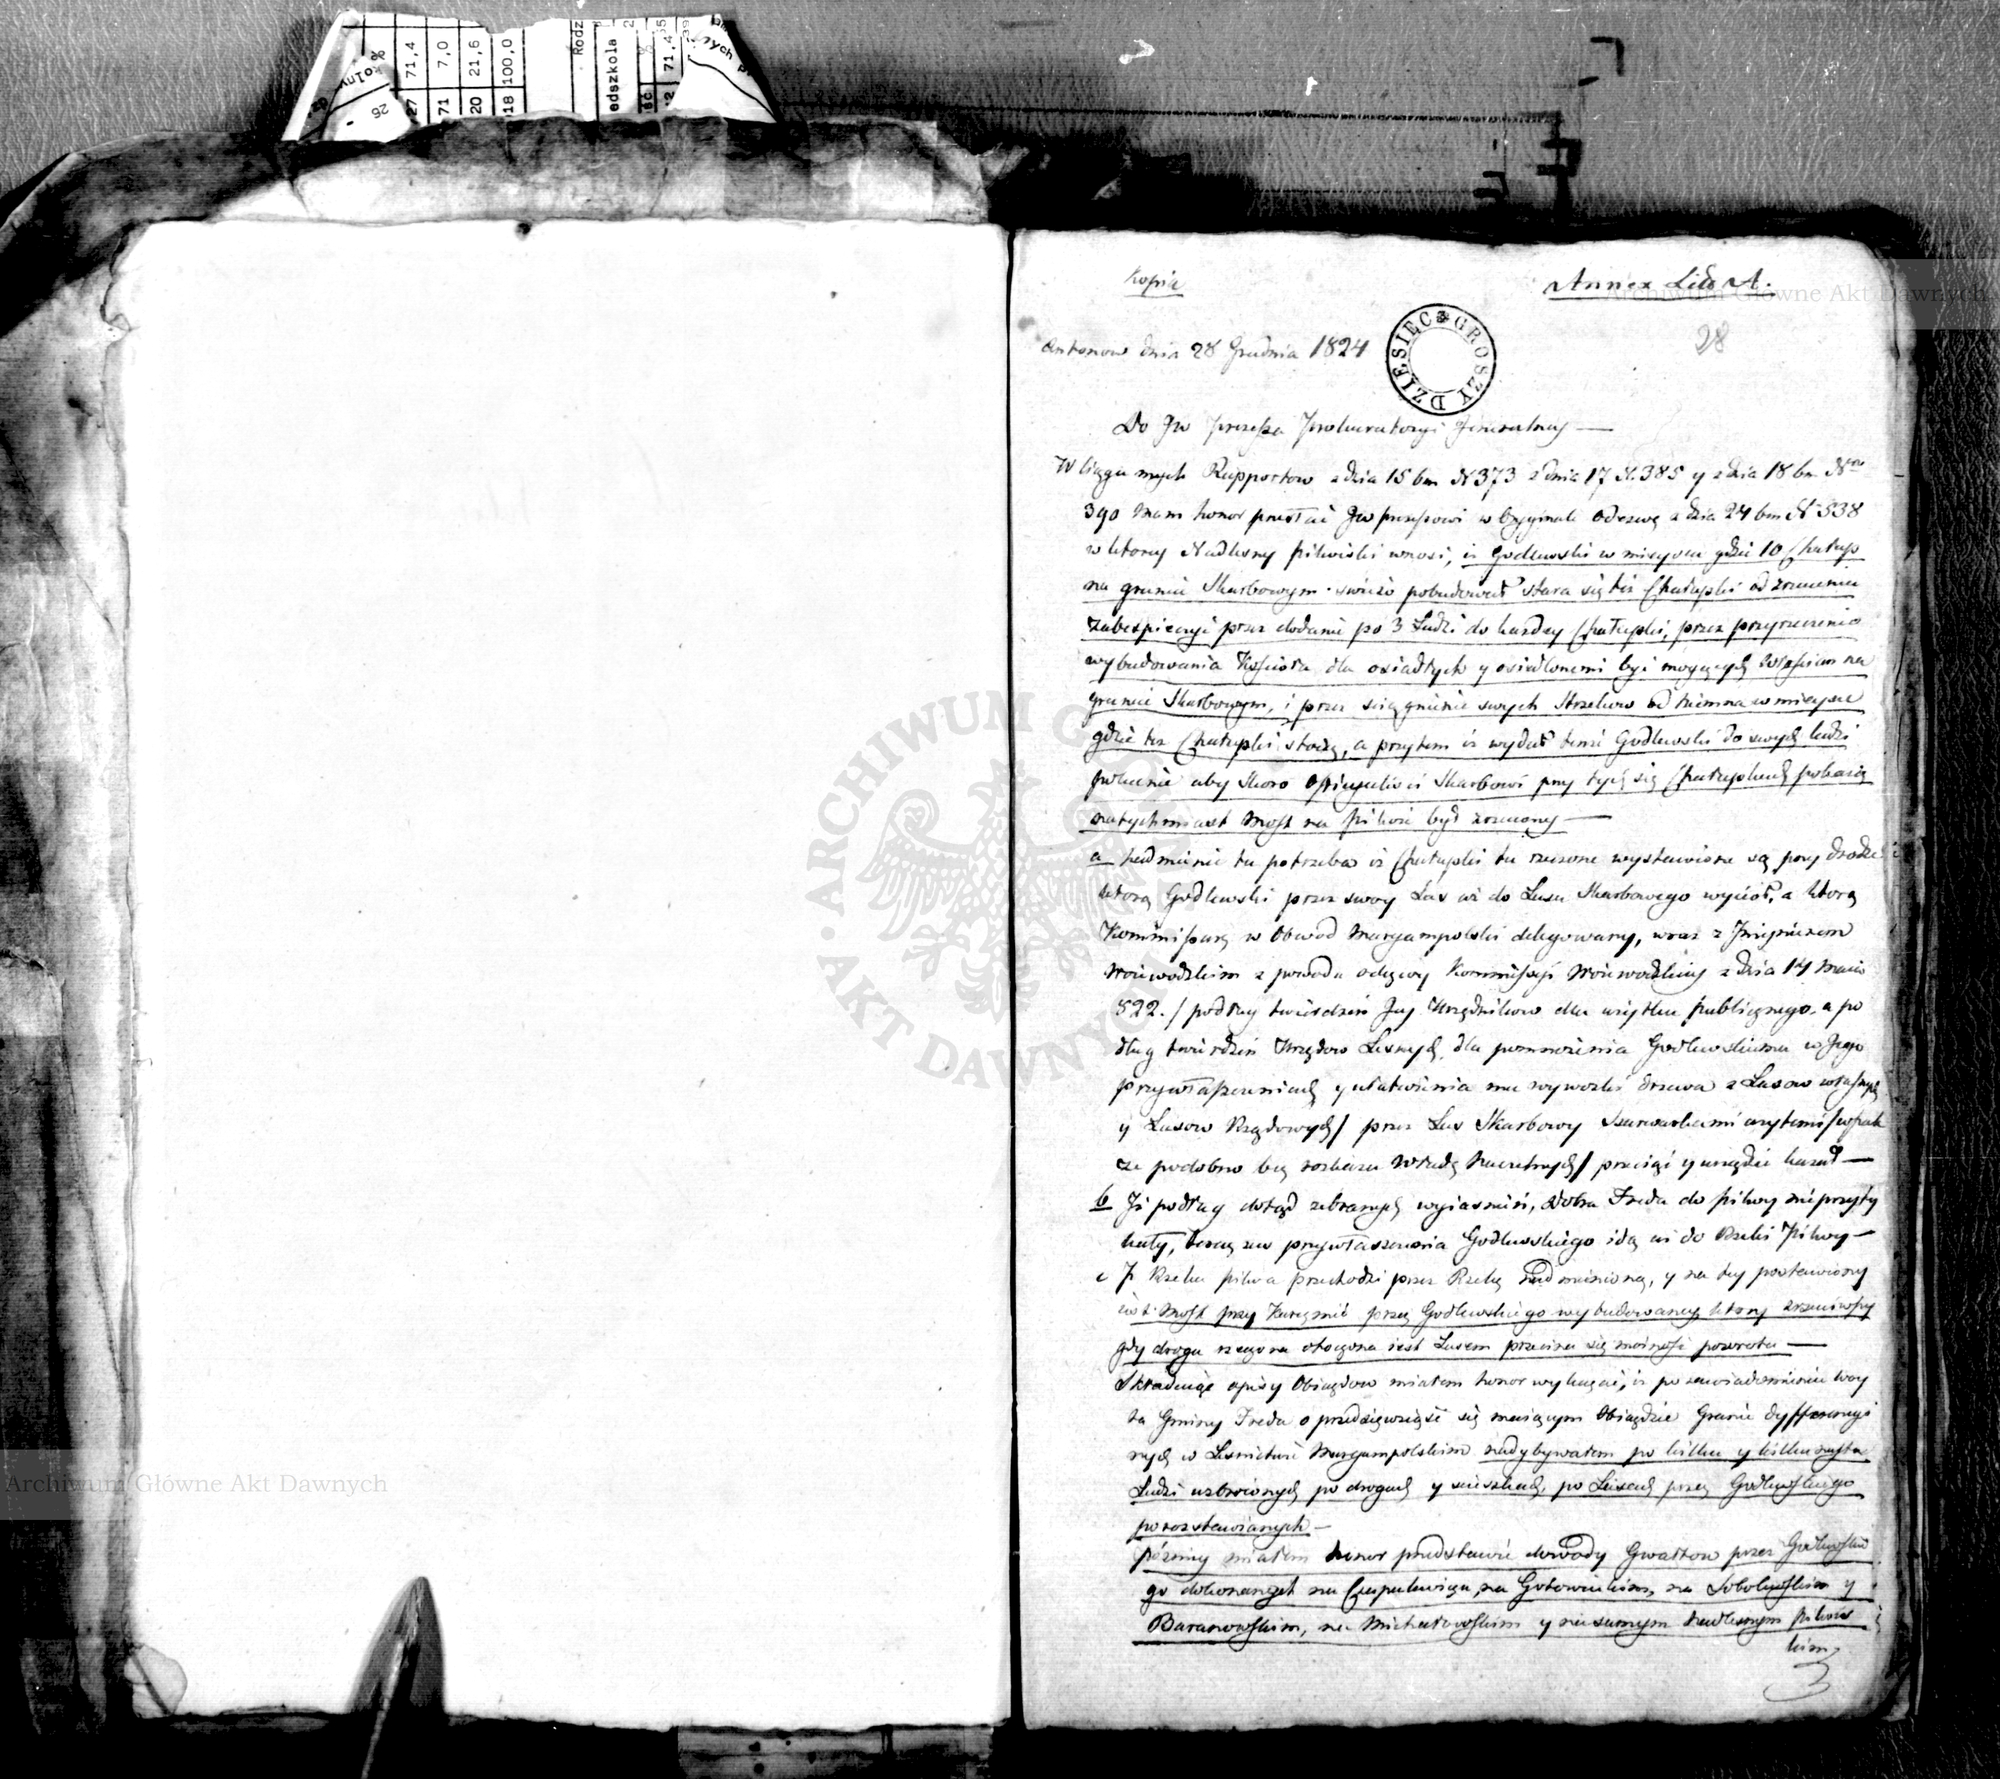 Kopia
Annex Litt A.
28
DZIESIĘC GROSZY
Antonow dnia 28 Grudnia 1824
Do JW Prezesa Prokuratoryi Generalney —
W ciągu mych Rapportow z dnia 15 bm N 373 z dnia 17 N. 385 y z dnia 18 bm Nro
390 mam honor przesłać JW Prezesowi w Oryginale Odezwę z dnia 24 bm N 538
w ktorey Nadleśny Pilwiski wnosi, iż Godlewski w mieyscu gdzie 10 Chałup
na gruncie Skarbowym swieżo pobudował stara się też Chałupki od zrzucenia
zabespieczyć przez dodanie po 3 Ludzi do każdey Chałupki, przez przyrzeczenie
wybudowania Kościoła dla osiadłych y osiedlonemi być mogących Włościan na
gruncie Skarbowym, i przez sciągnienie swych Strzelcow od Niemna w mieysce
gdzie też Chałupki stoią, a przytem iż wydał tenże Godlewski do swych ludzi
polecenie aby skoro Officyaliści Skarbowi przy tych się Chałupkach pokażą
natychmiast Most na Pilwie był zrzucony —
a nadmienić tu potrzeba iż Chałupki tu rzeczone wystawione są przy drodze
ktorą Godlewski przez swoy Las aż do Lasu Skarbowego wyciął, a ktorą
Kommissarz w Obwod Maryampolski delegowany, wraz z Inżynierem
Woiewodzkim z powodu odezwy Kommissyi Woiewodzkiey z dnia 14 Maia
822. / podług twierdzeń Jey Urzędnikow dla użytku publicznego, a po
dług twierdzeń Urzędow Leśnych, dla pomnożenia Godlewskiemu w Jego
przywłaszczeniach y ułatwienia mu wywozki drzewa z Lasow własnych
y Lasow Rządowych / przez Las Skarbowy Szarwarkami użytemi / wszak
że podobno bez rozkazu Władz Naczelnych / przeciąć y urządzić kazał —
b Iż podług dotąd zebranych wyiaśnień, Dobra Freda do Pilwy nieprzyty
kały, teraz zaś przywłaszczenia Godlewskiego idą aż do Rzeki Pilwy —
c Iż Rzeka Pilwa przechodzi przez Rzekę nadmienioną, y na tey postawiony
iest Most przy Karczmie przez Godlewskiego wybudowaney, ktory zrzuciwszy
gdy droga rzeczona otoczona iest Lasem przecina się możność powrotu —
Składaiąc opisy Obiazdow miałem honor wykazać, iż po zawiadomieniu Woy
ta Gminy Freda o przedsięwziąść się maiącym Obiazdzie Granic dyfferencyi
nych w Leśnictwie Maryampolskim nadybywałem po kilku y kilkunastu
Ludzi uzbroionych po drogach y scieszkach, po Lasach przez Godlewskiego
porozstawianych —
Pózniey miałem honor przedstawić dowody Gwałtow przez Godlewskie
go dokonanych na Czapkiewiczu, na Gotowickim, na Sobolewskim y
Baranowskim, na Michałowskim y na samym Nadleśnym Pilwis
kim,
Archiwum Główne Akt Dawnych
Archiwum Główne Akt Dawnych
ARCHIWUM GŁÓWNE AKT DAWNYCH
71,4
7,0
21,6
100,0
edszkola
71,4